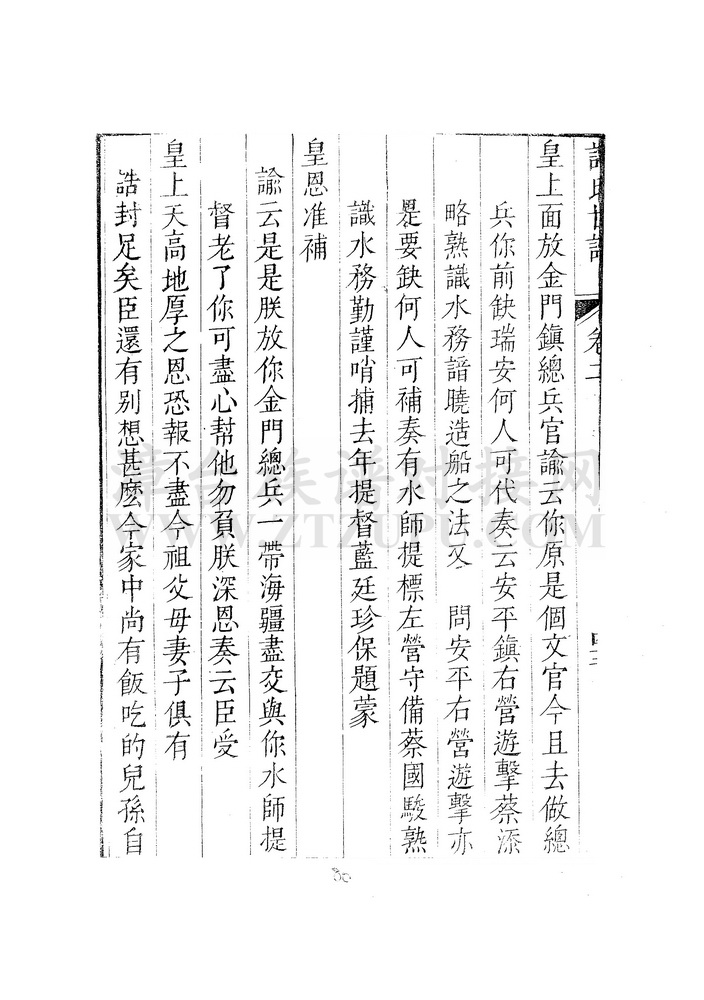 皇上面放金門鎮總兵官諭云你原是個文官今且去做總
兵你前缺瑞安何人可代奏云安平鎮右營遊擊蔡添
略熟識水務諳曉造船之法又 問安平右營遊擊亦
是要缺何人可補奏有水師提標左營守備蔡國駿熟
識水務勤謹哨捕去年提督藍廷珍保題蒙
皇恩准補
諭云是是朕放你金門總兵一帶海疆盡交與你水師提
督老了你可盡心幫他勿負朕深恩奏云臣受
皇上天高地厚之恩恐報不盡今祖父母妻子俱有
誥封足矣臣還有別想甚麼今家中尚有飯吃的兒孫自
卷二
WWW.ZTZUPU.COM
30